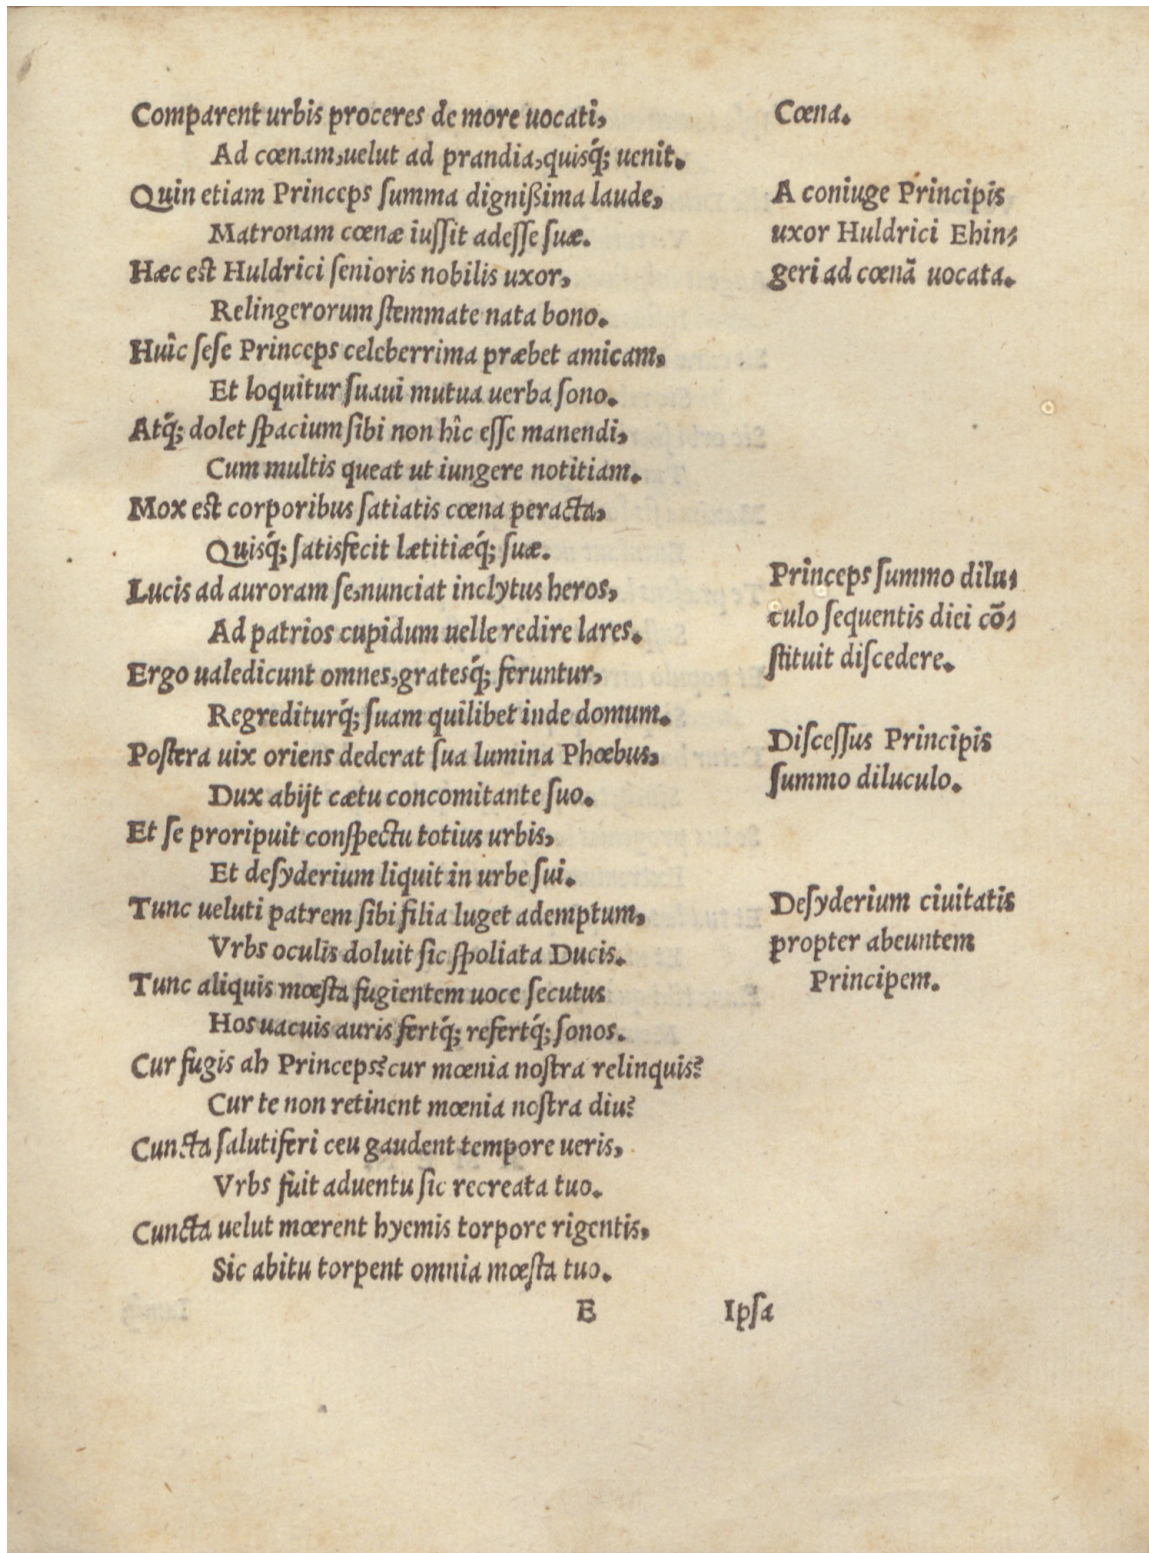 Comparent urbis proceres de more uocati,
Ad cœnam, uelut ad prandia, quisq́; uenit.
Quin etiam Princeps ſumma digniſſima laude,
Matronam cœnæ iuſſit adeſſe ſuæ.
Hæc eſt Huldrici ſenioris nobilis uxor,
Relingerorum ſtemmate nata bono.
Huic ſeſe Princeps celeberrima præbet amicam,
Et loquitur ſuaui mutua uerba ſono.
Atq́; dolet ſpacium ſibi non hîc eſſe manendi,
Cum multis queat ut iungere notitiam.
Mox eſt corporibus ſatiatis cœna peracta,
Quisq́; ſatisfecit lætitiæq́; ſuæ.
Lucis ad auroram ſe, nunciat inclytus heros,
Ad patrios cupidum uelle redire lares.
Ergo ualedicunt omnes, gratesq́; feruntur,
Regrediturq́; ſuam quilibet inde domum.
Poſtera uix oriens dederat ſua lumina Phœbus,
Dux abijt cætu concomitante ſuo.
Et ſe proripuit conſpectu totius urbis,
Et deſyderium liquit in urbe ſui.
Tunc ueluti patrem ſibi filia luget ademptum,
Vrbs oculis doluit ſic ſpoliata Ducis.
Tunc aliquis mœſta fugientem uoce ſecutus
Hos uacuis auris fertq́; refertq́; ſonos.
Cur fugis ah Princeps? cur mœnia noſtra relinquis?
Cur te non retinent mœnia noſtra diu?
Cuncta ſalutiferi ceu gaudent tempore ueris,
Vrbs fuit aduentu ſic recreata tuo.
Cuncta uelut mœrent hyemis torpore rigentis,
Sic abitu torpent omnia mœſta tuo.
E Ipſa
Cœna.
A coniuge Principis
uxor Huldrici Ehin⸗
geri ad cœnā uocata.
Princeps ſummo dilu⸗
culo ſequentis diei cō⸗
ſtituit diſcedere.
Diſceſſus Principis
ſummo diluculo.
Deſyderium ciuitatis
propter abeuntem
Principem.